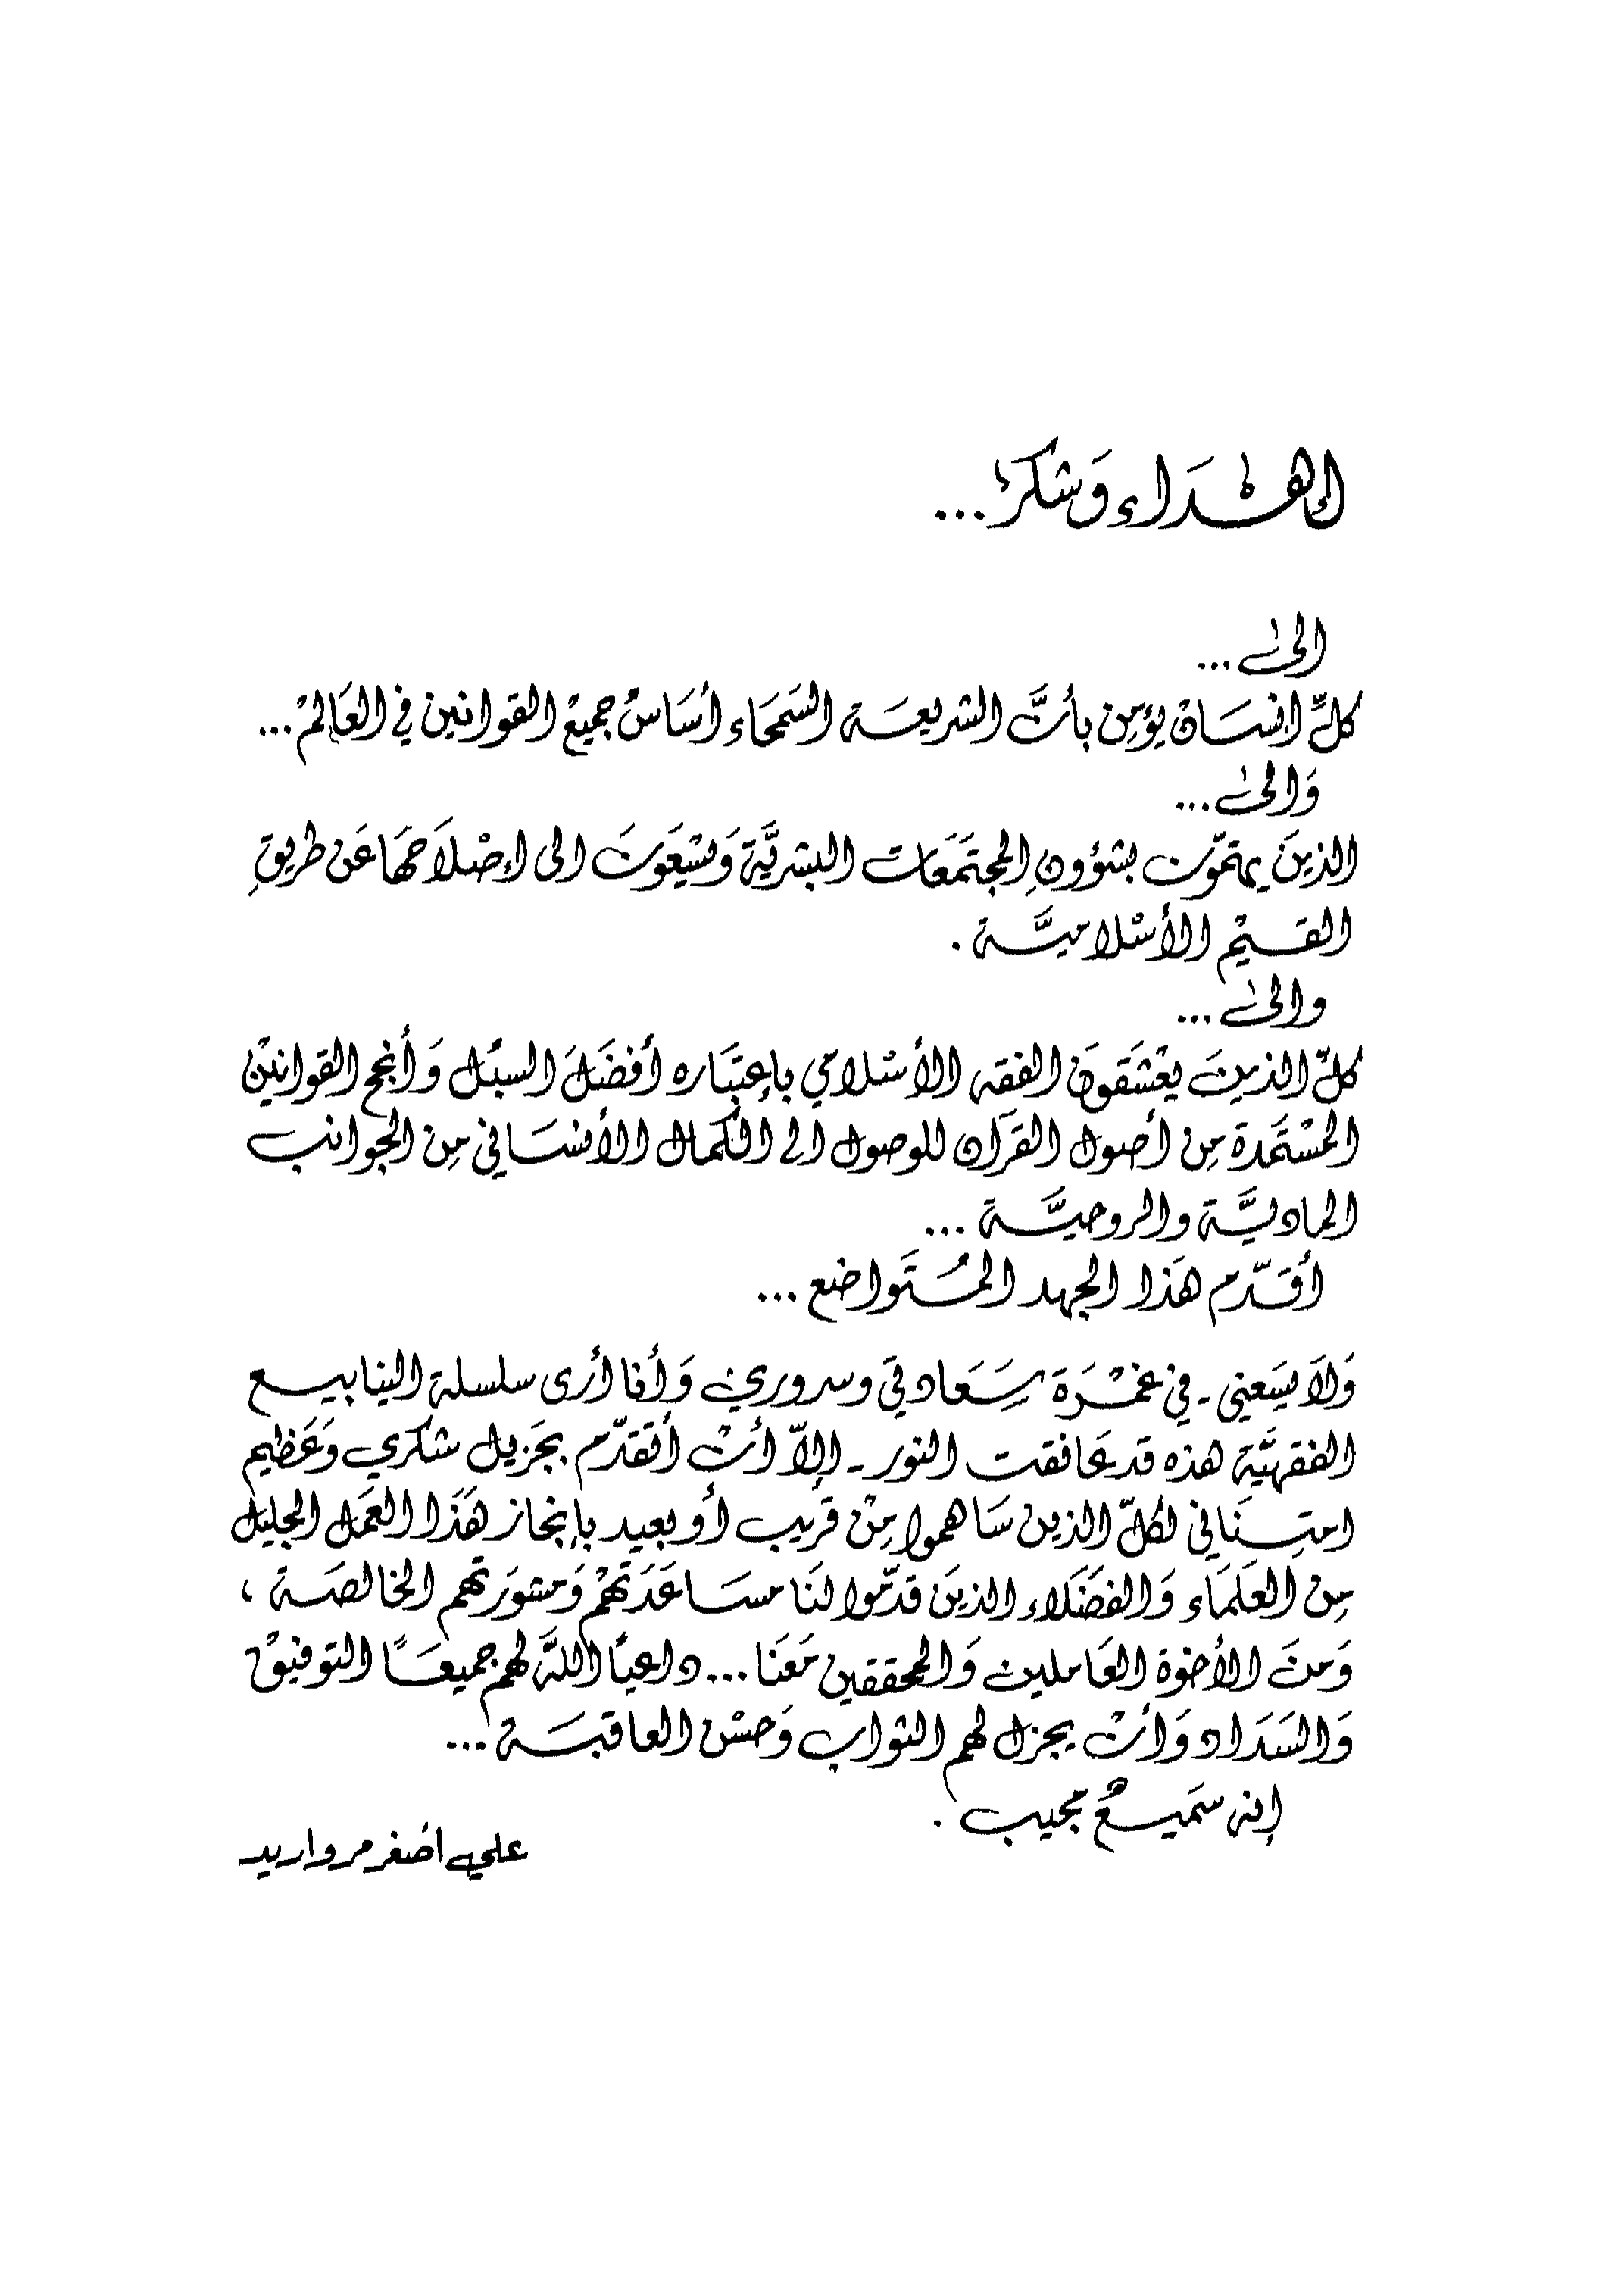 إهداء وشكر...
الى...
كلِّ انسان يؤمِن بأنَّ الشريعة السَمحَاء أسَاسُ جميع القوانين في العَالمْ...
وَالى...
الذينَ يهتمّون بشؤونِ المجتَمَعَات البشريَّة وَيسْعَونَ الى إصْلاَحهَا عَن طريقِ
القيْم الأسْلاميَّة .
والى...
كلّ الذينَ يعْشَقونَ الفقه الأسْلامي بإعتبَاره أفضَلَ السبُل وَأنجح القوانينْ
المسْتَمَدة مِن أصول القرآن للوصول الى الكمال الأنسَاني مِن الجوانب
الماديَّة والروحيَّة ...
أقدّم هَذا الجهد المُتَواضع ...
وَلاَ يسَعني - في غمْرَة سَعَادتي وسروري وَأنا أرى سلسلة الينابيع
الفقهيَّة هذه قد عَانقت النور - إلاّ أنْ أتقدّم بجَزيل شكري وَعَظيم
امتِنَاني لكلّ الذين سَاهموا مِنْ قَريب أو بعيد بإنجاز هَذَا العَمَل الجليل
مِن العَلَمَاء وَالفضَلاء الذينَ قدّموا لنَا مسَاعَدَتهُمْ وَمشوَرتهم الخالصَة ،
وَمنَ الأخوة العَاملين وَالمحققين مَعَنَا ... داعيًا اللهَ لهم جميعًا التوفيقْ
وَالسَدَاد وَأنْ يجزل لهم الثواب وَحسْن العاقبَة ...
إنه سَميعٌ مجيب .
علي اصغر مرواريد